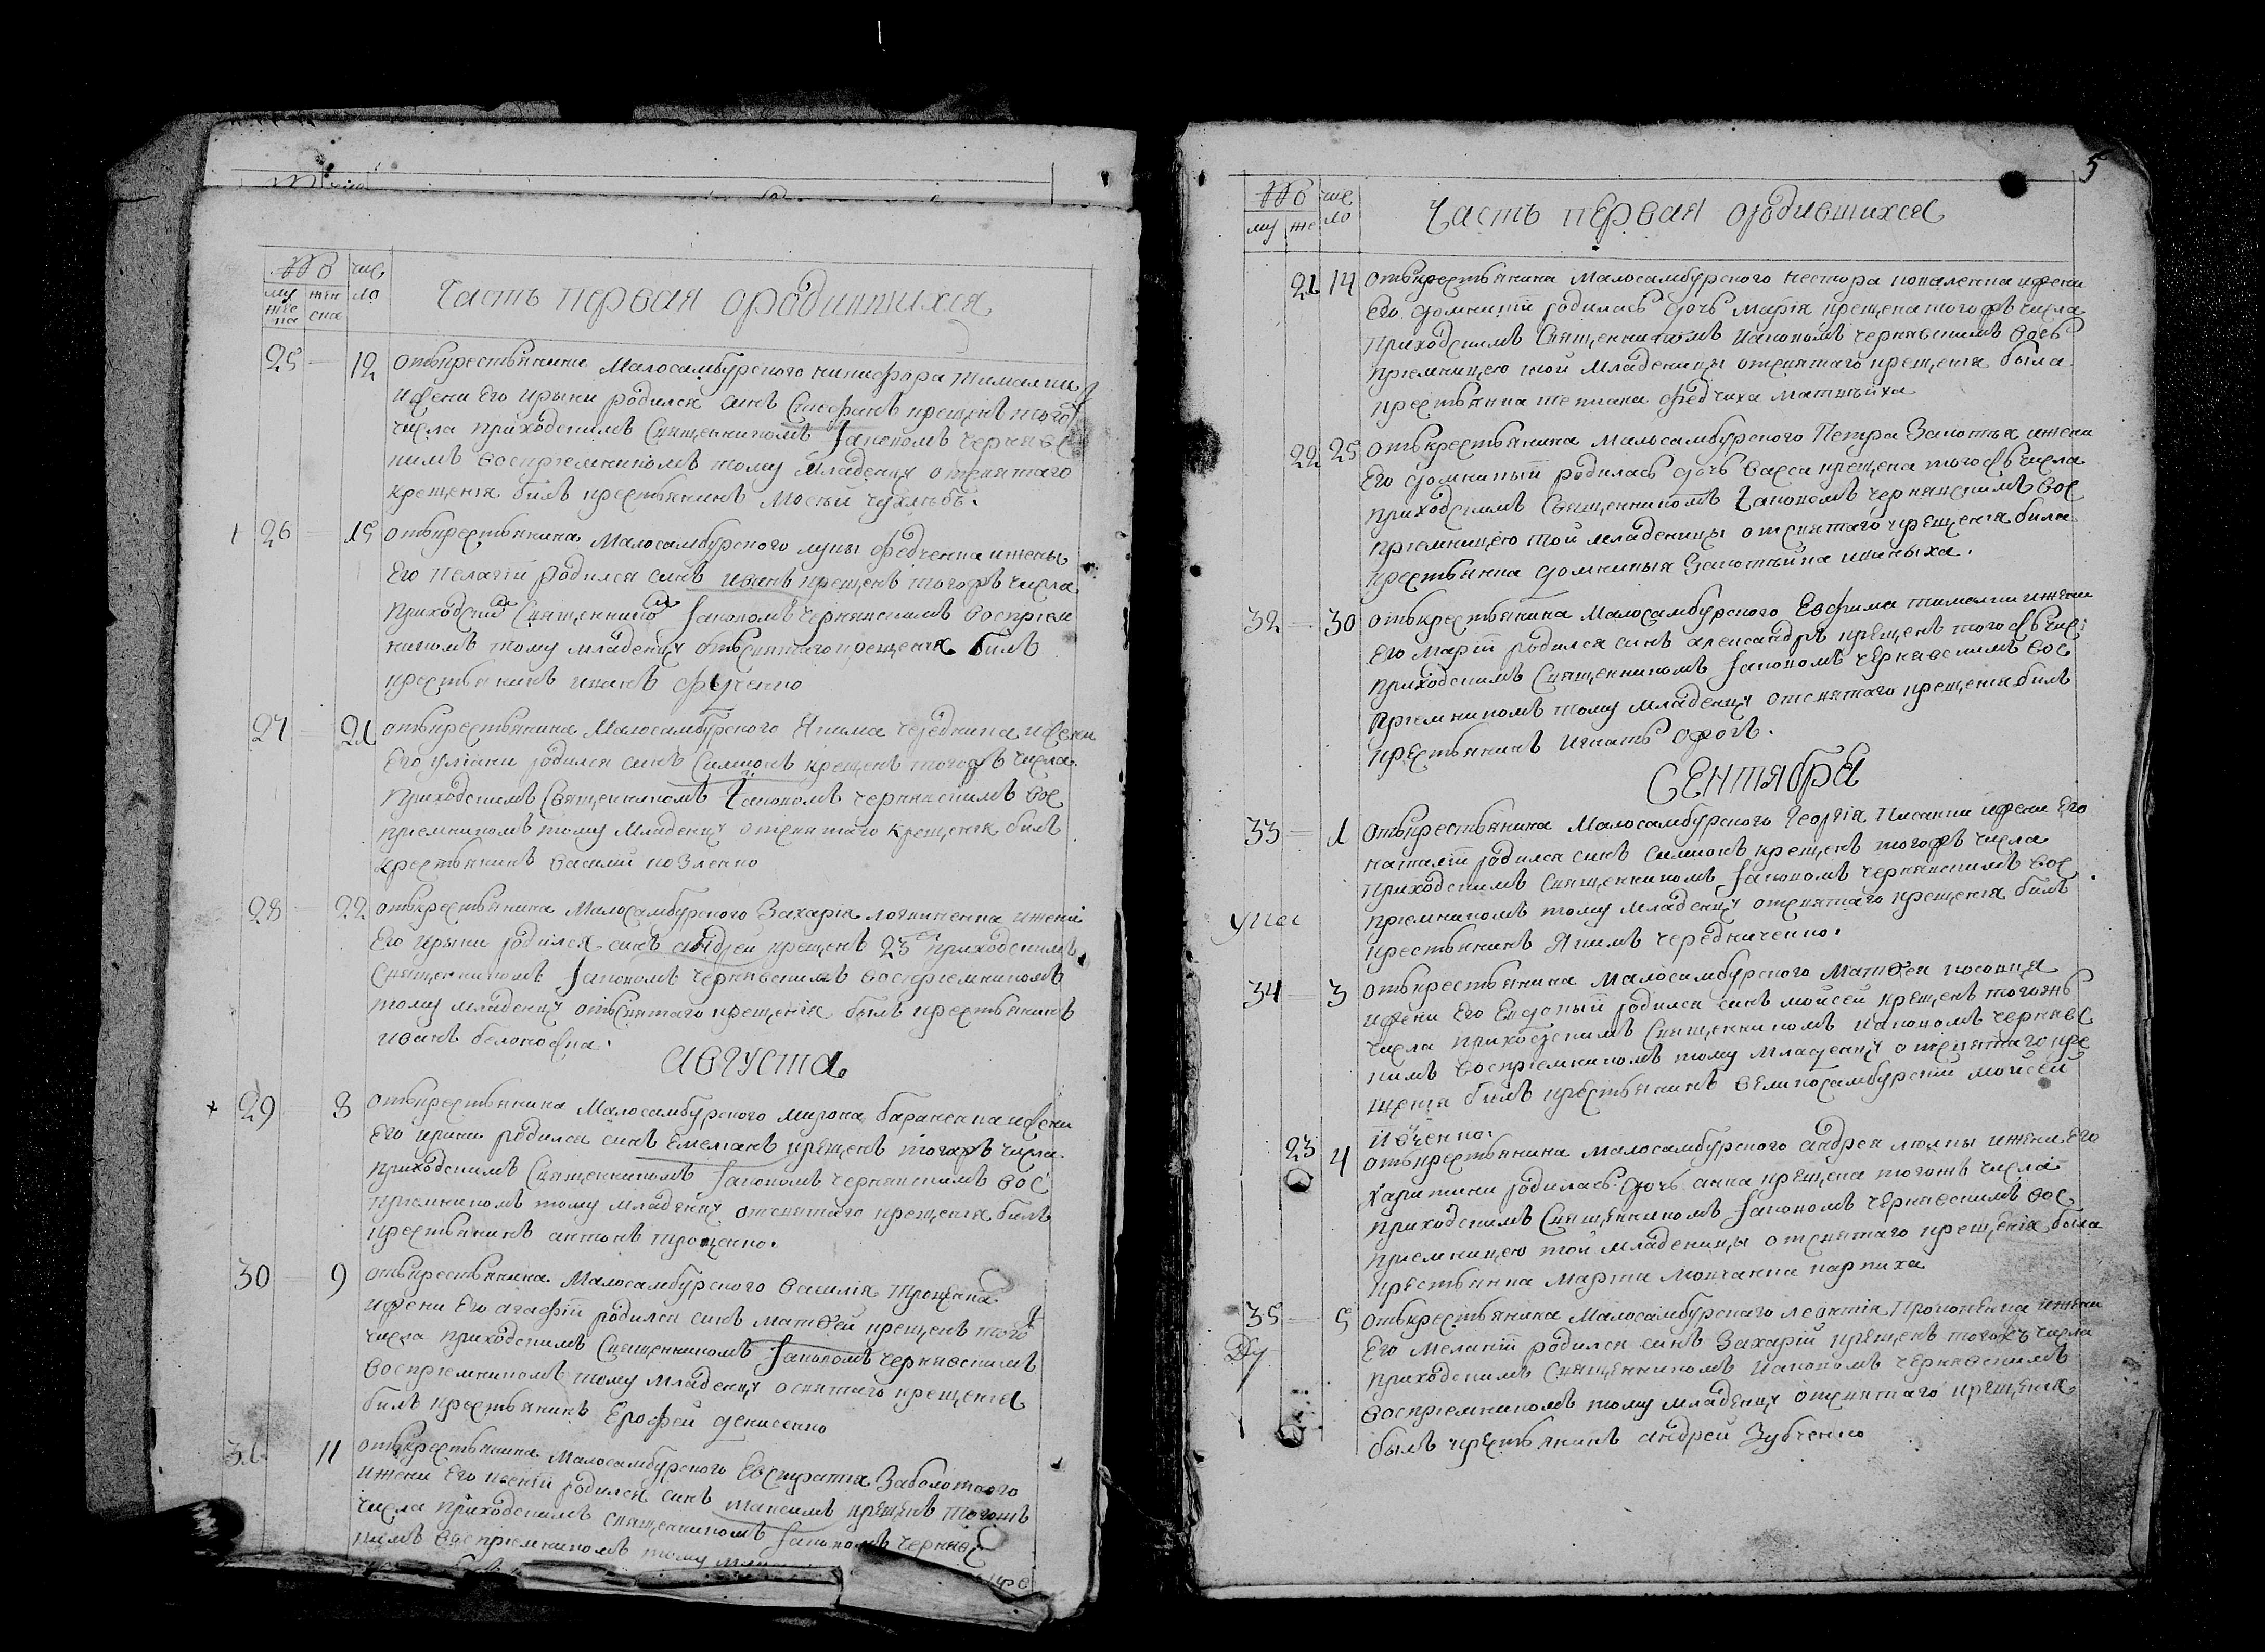 № чис
му же ло
же на ска
Часть первая ородившихся
25 12 отъкрестьянина Малосамбурского никифора шималки
ижени Его ирыни родился синъ Стефанъ крещенъ того ж
числа приходскимъ Священникомъ Іаковомъ Чернявс
кимъ воспріемникомъ тому младенцу отсвятаго
крещенія билъ крестьянинъ Мосѣй чухлѣбъ.
1 26 15 отъкрестьянина Малосамбурского лупы федченка ижены
Его Пелагіи родился синъ иванъ крещенъ тогожъ числа
приходским Священником Іаковомъ Чернявскимъ воспріем
никомъ тому младенцу отъсвятаго крещенія билъ
крестьянинъ иванъ
27 21 отъкрестьянина Малосамбурского Якима чередника ижени
Его уліани родился синъ Симионъ крещенъ тогожъ числа
приходскимъ Священникомъ Іаковомъ чернявскимъ вос
пріемникомъ тому младенцу отсвятаго крещенія билъ
крестьянинъ василій козленко
28 22 отъкрестьянина Малосамбурского Захарія логвиненка ижени
Его ирыни родился синъ андрей крещенъ 23 приходскимъ
Священникомъ Іаковомъ чернявскимъ воспріемникомъ
тому младенцу отъсвятаго крещенія былъ крестьянинъ
иванъ
августа
29 8 отъкрестьянина Малосамбурского мирона бараненка ижени
Его ирини родился синъ Емеліанъ крещенъ тогожъ числа
приходскимъ Священникомъ Іаковомъ чернявскимъ вос
пріемникомъ тому младенцу отсвятаго крещенія билъ
крестьянинъ антонъ троценко.
30 9 отъкрестьянина Малосамбурского василія троценка
ижени Его агафіи родился синъ матѳей крещенъ того ж
числа приходскимъ Священникомъ Іаковомъ чернявскимъ
воспріемникомъ тому младенцу освятаго крещенія
билъ крестьянинъ Ерофей денисенко
31 11 отъкрестьянина Малосамбурского Евстратія Заболотного
ижени Его ксеніи родился синъ максимъ крещенъ тогожъ
числа приходскимъ священникомъ Іаковомъ чернявс
кимъ воспріемникомъ тому
5
№ чис
му же ло
Часть пЕрвая ородившихся
21 14 отъкрестьянина Малосамбурского нестора коваленка ижени
Его домникіи родилась дочъ марія крещена тогожъ числа
приходскимъ Священникомъ Иаковомъ чернявскимъ вось
пріемницею той младеницы отсвятаго крещенія была
крестьянка федчиха
22 25 отъкрестьянина Малосамбурского Петра Заполья ижени
Его домникіи родилась дочъ васса крещена тогожъ числа
приходскимъ Священникомъ Іаковомъ чернявскимъ вос
пріемницею той младеницы отсвятаго крещенія била
крестьянка домникія
32 30 отъкрестьянина Малосамбурского Евфима шималки ижени
Его Маріи родился синъ александръ крещенъ тогожъ чис:
приходскимъ Священникомъ Іаковомъ чЕрнявскимъ вос
пріемникомъ тому младенцу отсвятаго крещенія билъ
крЕстьянинъ Игнатъ
СЕнтября
33 1 отъкрестьянина Малосамбурского Георгія Писанки ижени Его
наталіи родился синъ симионъ крещенъ тогожъ числа
приходскимъ священникомъ Іаковомъ чернявскимъ вос
пріемникомъ тому младенцу отсвятаго крещенія билъ
крестьянинъ Якимъ чередниченко.
34 3 отъкрестьянина Малосамбурского Матѳея носовця
ижени Его Евдокіи родился синъ моисей крещенъ тогожъ
числа приходскимъ Священникомъ Иаковомъ чернявс
кимъ воспріемникомъ тому младенцу отсвятаго кре
щенія билъ крЕстьянинъ вЕликосамбурскій мойсей
ивченко.
23 4 отъкрестьянина Малосамбурского андрея люлки ижени Его
харитини родилась дочъ анна крЕщена тогожъ числа
приходскимъ СвящЕнникомъ Іаковомъ чЕрнявскимъ вос
пріемницею той младеницы отсвятаго крещЕнія была
крЕстьянка Марта
35 5 отъкрестьянина Малосамбурскаго леонтія ижени
Его Меланіи родился синъ Захарій крЕщенъ тогожъ числа
приходскимъ Священникомъ Иаковомъ чЕрнявскимъ
воспріемникомъ тому младенцу отсвятаго крЕщЕнія
былъ крЕстьянинъ андрей Зубченко